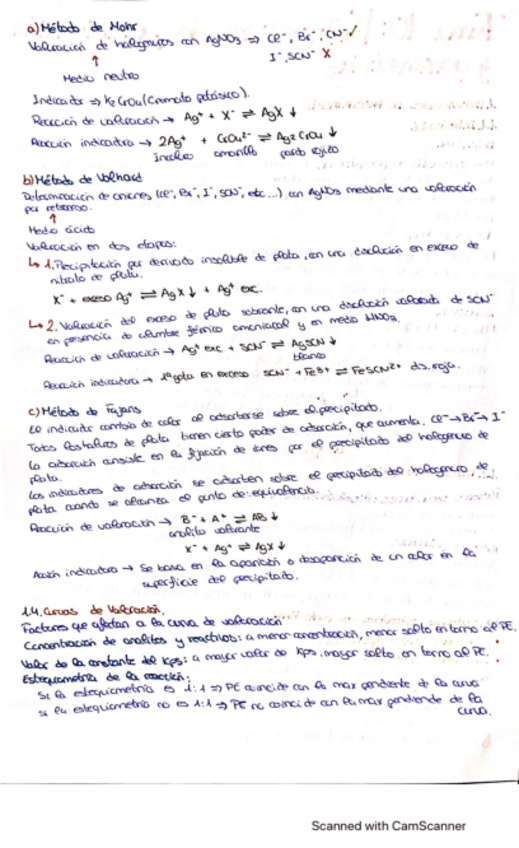 a) Método de Mohr
Valoración de halógenuros con AgNO3 ⇒ Cl⁻, Br⁻, CN⁻ ✓
I⁻, SCN⁻ X
↑
Medio neutro
Indicador ⇒ K2CrO4 (Cromato potásico).
Reacción de valoración → Ag⁺ + X⁻ ⇌ AgX ↓
Reacción indicadora → 2Ag⁺ + CrO4²⁻ ⇌ Ag2CrO4 ↓
Incoloro amarillo pardo rojizo
b) Método de Volhard
Determinación de aniones (Cl⁻, Br⁻, I⁻, SCN⁻, etc...) con AgNO3 mediante una valoración
por retroceso.
↑
Medio ácido
Valoración en dos etapas:
↳ 1. Precipitación por derivado insoluble de plata, con una disolución en exceso de
nitrato de plata.
X⁻ + exceso Ag⁺ ⇌ AgX ↓ + Ag⁺ exc.
↳ 2. Valoración del exceso de plata sobrante, con una disolución valorada de SCN⁻
en presencia de alumbre férrico amoniacal y en medio HNO3.
Reacción de valoración → Ag⁺ exc + SCN⁻ ⇌ AgSCN ↓
blanco
Reacción indicadora → 1ª gota en exceso SCN⁻ + Fe³⁺ ⇌ FeSCN²⁺ dis. roja.
c) Método de Fajans
El indicador cambia de color al adsorberse sobre el precipitado.
Todos los haluros de plata tienen cierto poder de adsorción, que aumenta. Cl⁻ → Br⁻ → I⁻
La adsorción consiste en la fijación de iones por el precipitado del halogenuro de
plata.
Los indicadores de adsorción se adsorben sobre el precipitado del halogenuro de
plata cuando se alcanza el punto de equivalencia.
Reacción de valoración → B⁻ + A⁺ ⇌ AB ↓
analito valorante
X⁻ + Ag⁺ ⇌ AgX ↓
Acción indicadora → Se basa en la aparición o desaparición de un color en la
superficie del precipitado.
1.4. Curvas de Valoración.
Factores que afectan a la curva de valoración
Concentración de analitos y reactivos: a menor concentración, menor salto en torno al PE.
Valor de la constante del Kps: a mayor valor de Kps, mayor salto en torno al PE.
Estequiometría de la reacción:
Si la estequiometría es 1:1 ⇒ PE coincide con la max pendiente de la curva
si la estequiometría no es 1:1 ⇒ PE no coincide con la max pendiente de la
curva.
Scanned with CamScanner